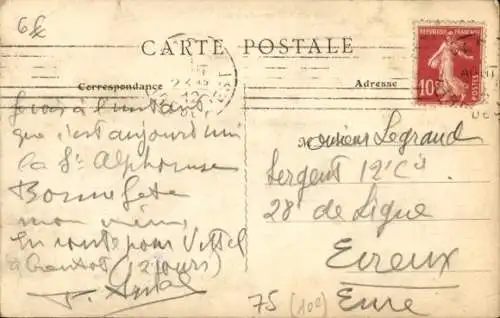 CARTE POSTALE
Correspondance
Adresse
RÉPUBLIQUE FRANÇAISE
10c
POSTES
Je vois à l'instant,
que c'est aujourd'hui
la St. Alphonse
Bonne fête
mon vieux,
En route pour Vittel
(2 jours)
Monsieur Legrand
Sergent 12e Cie
28e de Ligne
Evreux
Eure
75 (100)